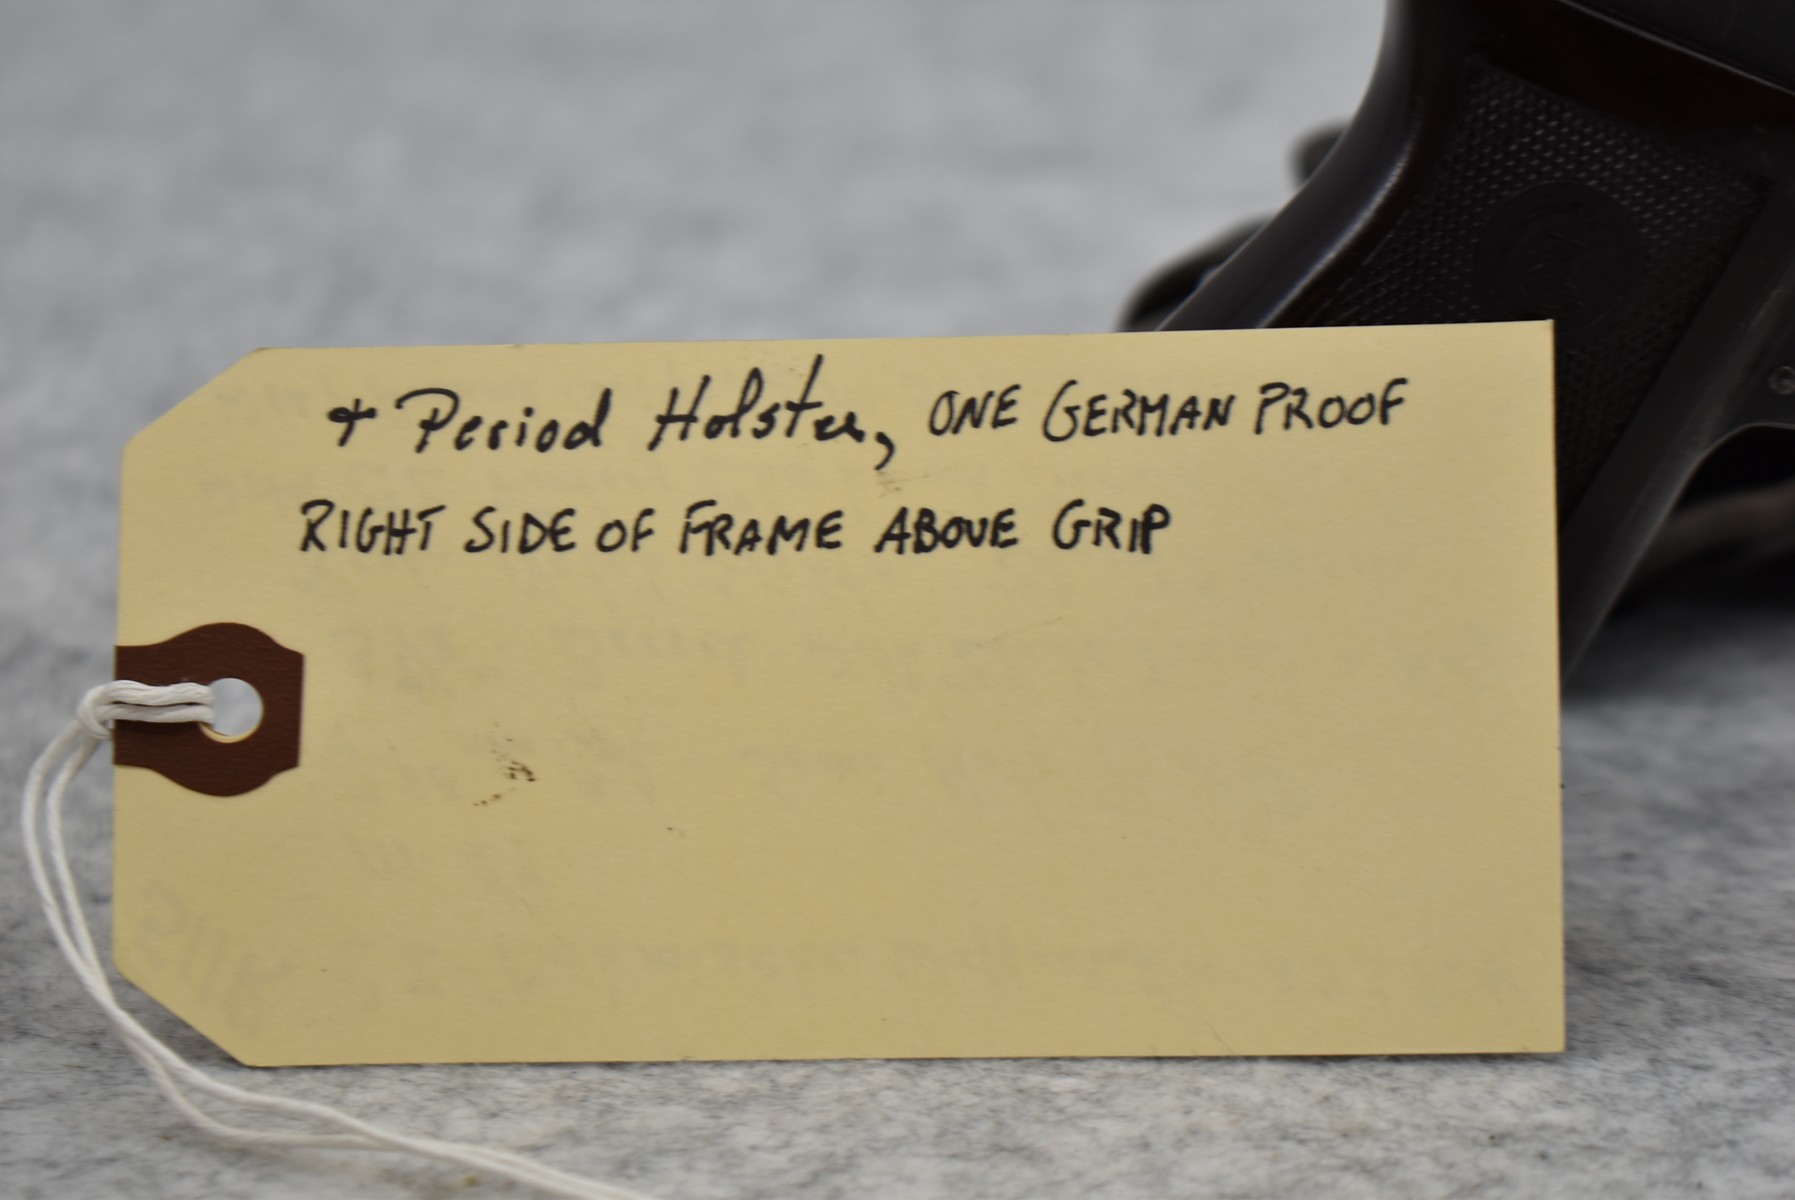 + Period Holster, ONE GERMAN PROOF
RIGHT SIDE OF FRAME ABOVE GRIP